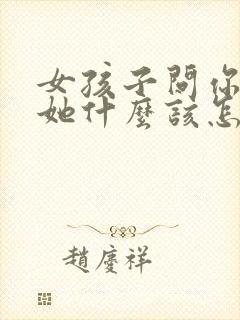 女孩子問你
她什麼該怎
趙慶祥